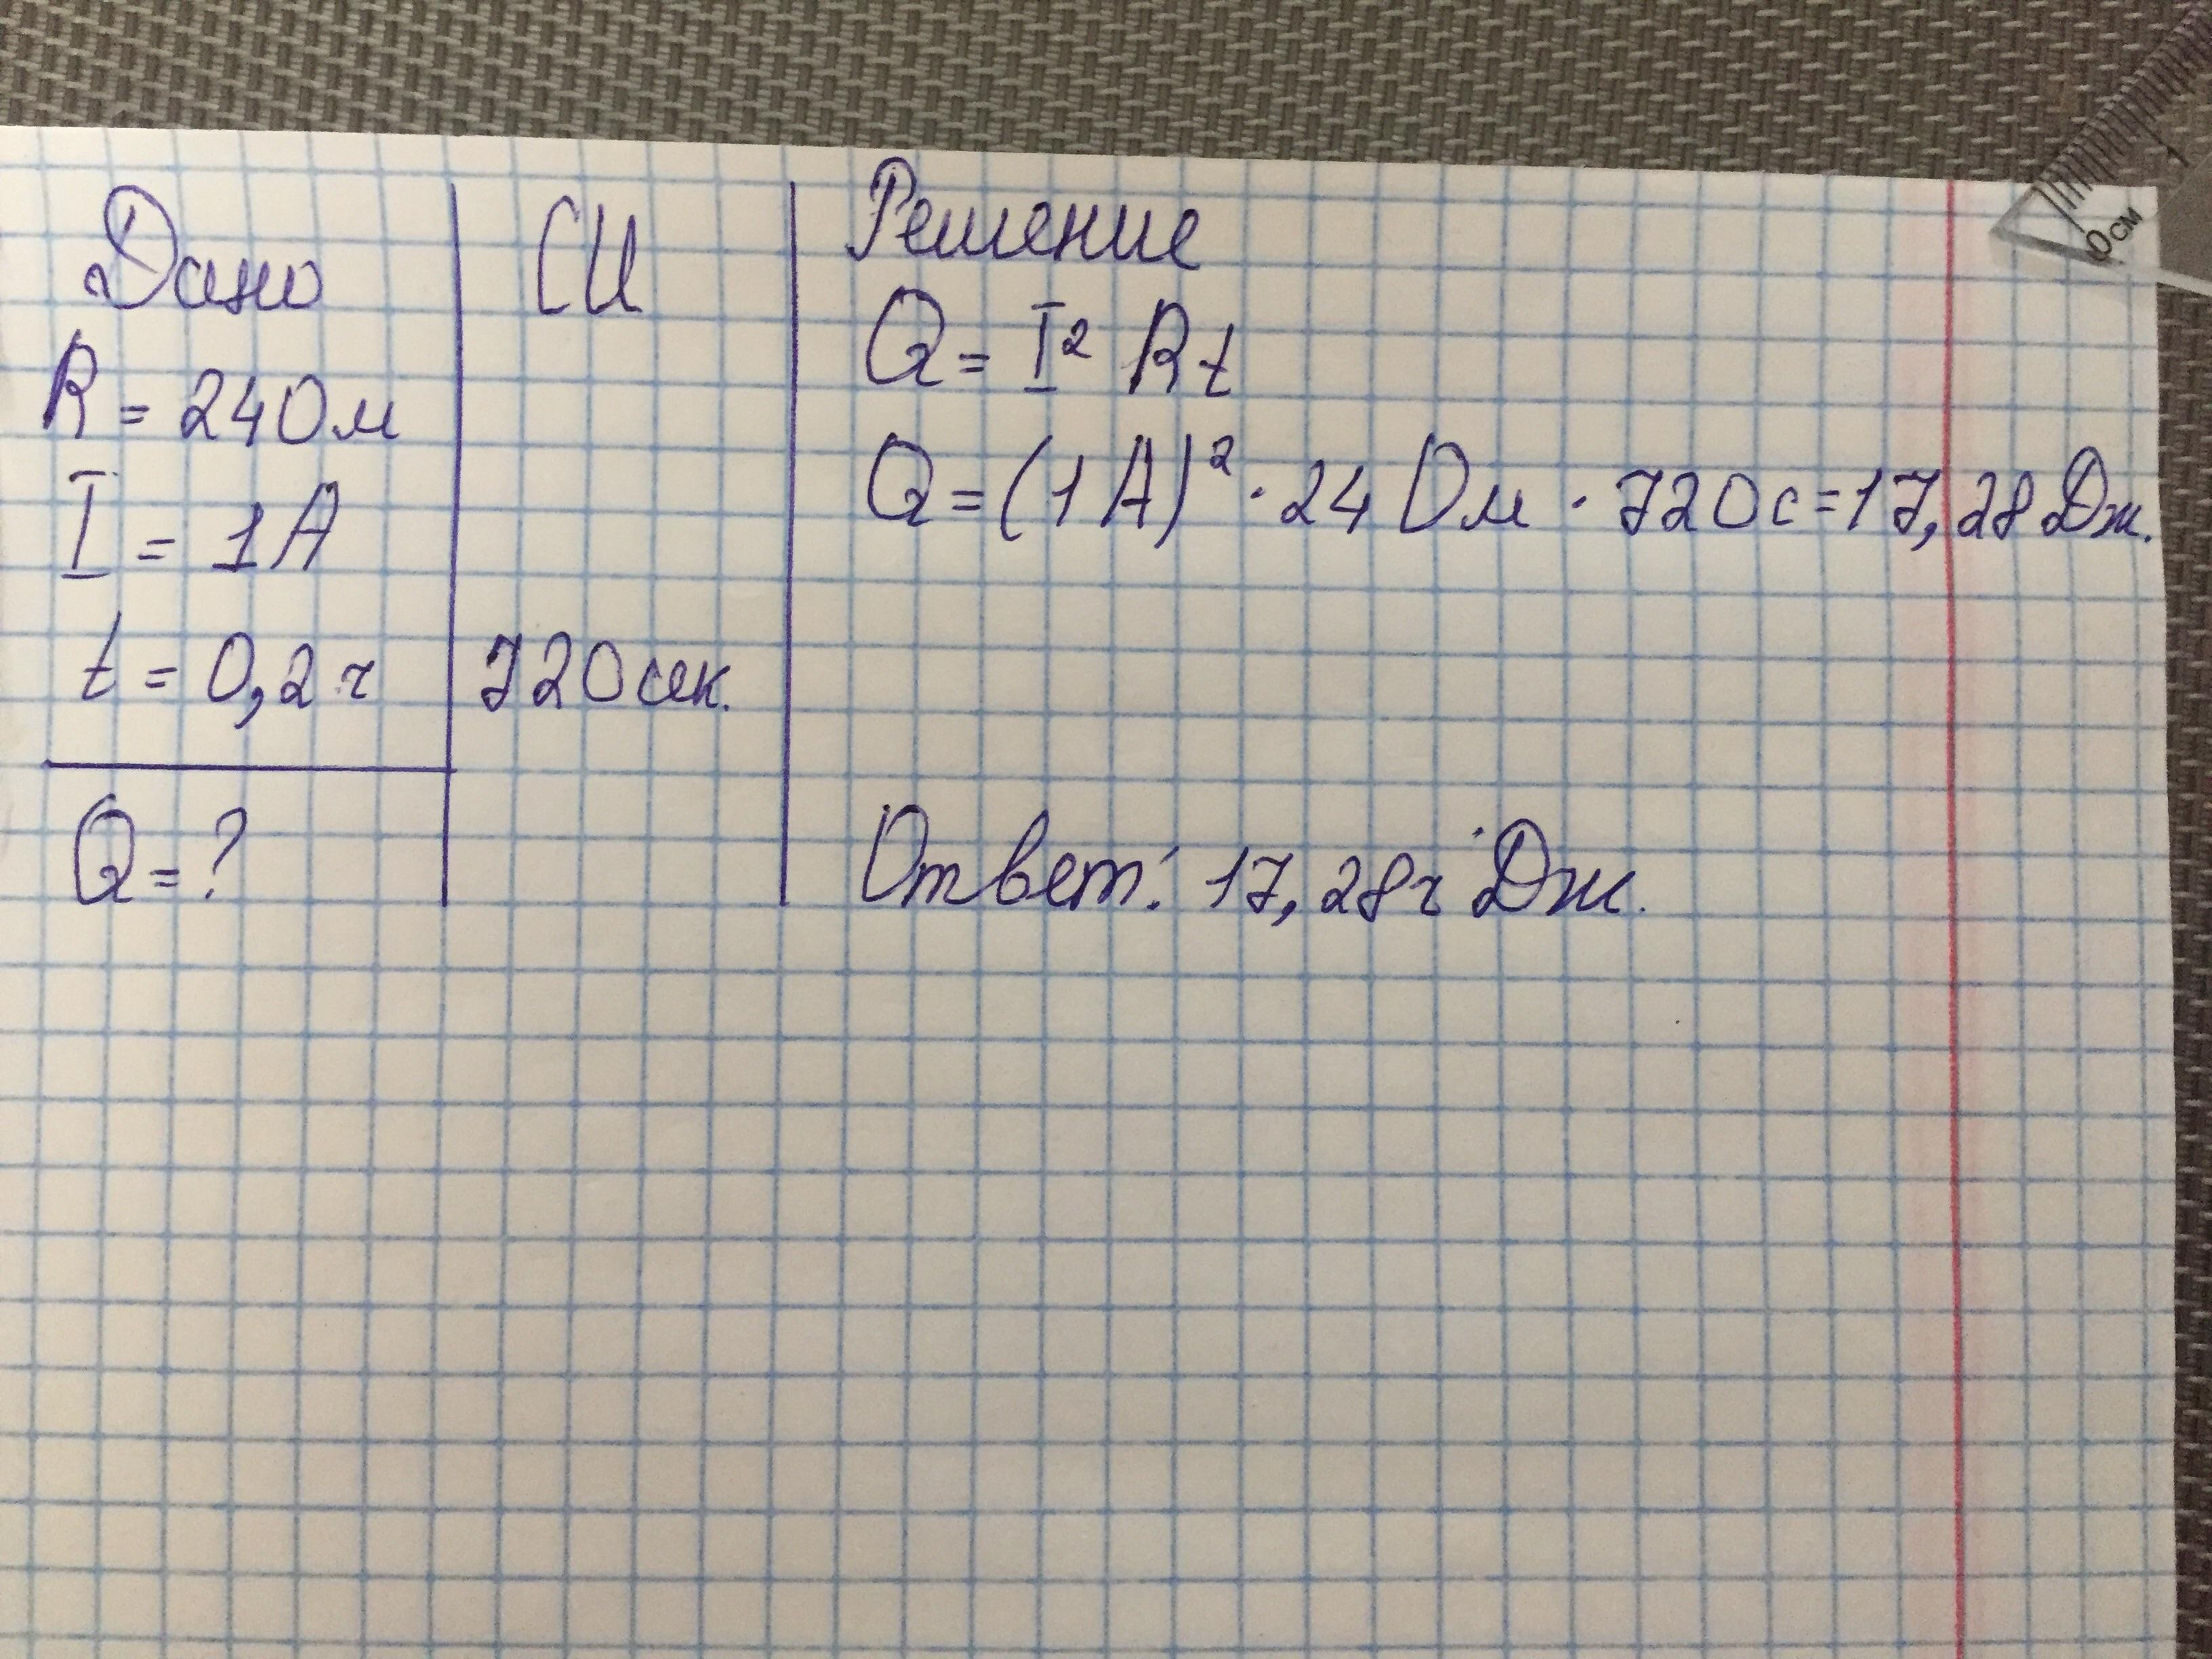 Дано
R = 24 Ом
I = 1 А
t = 0,2 ч
Q = ?
СИ
720 сек.
Решение
Q = I² R t
Q = (1 А)² · 24 Ом · 720 с = 17,28 Дж.
Ответ: 17,28ч Дж.
0 см
1